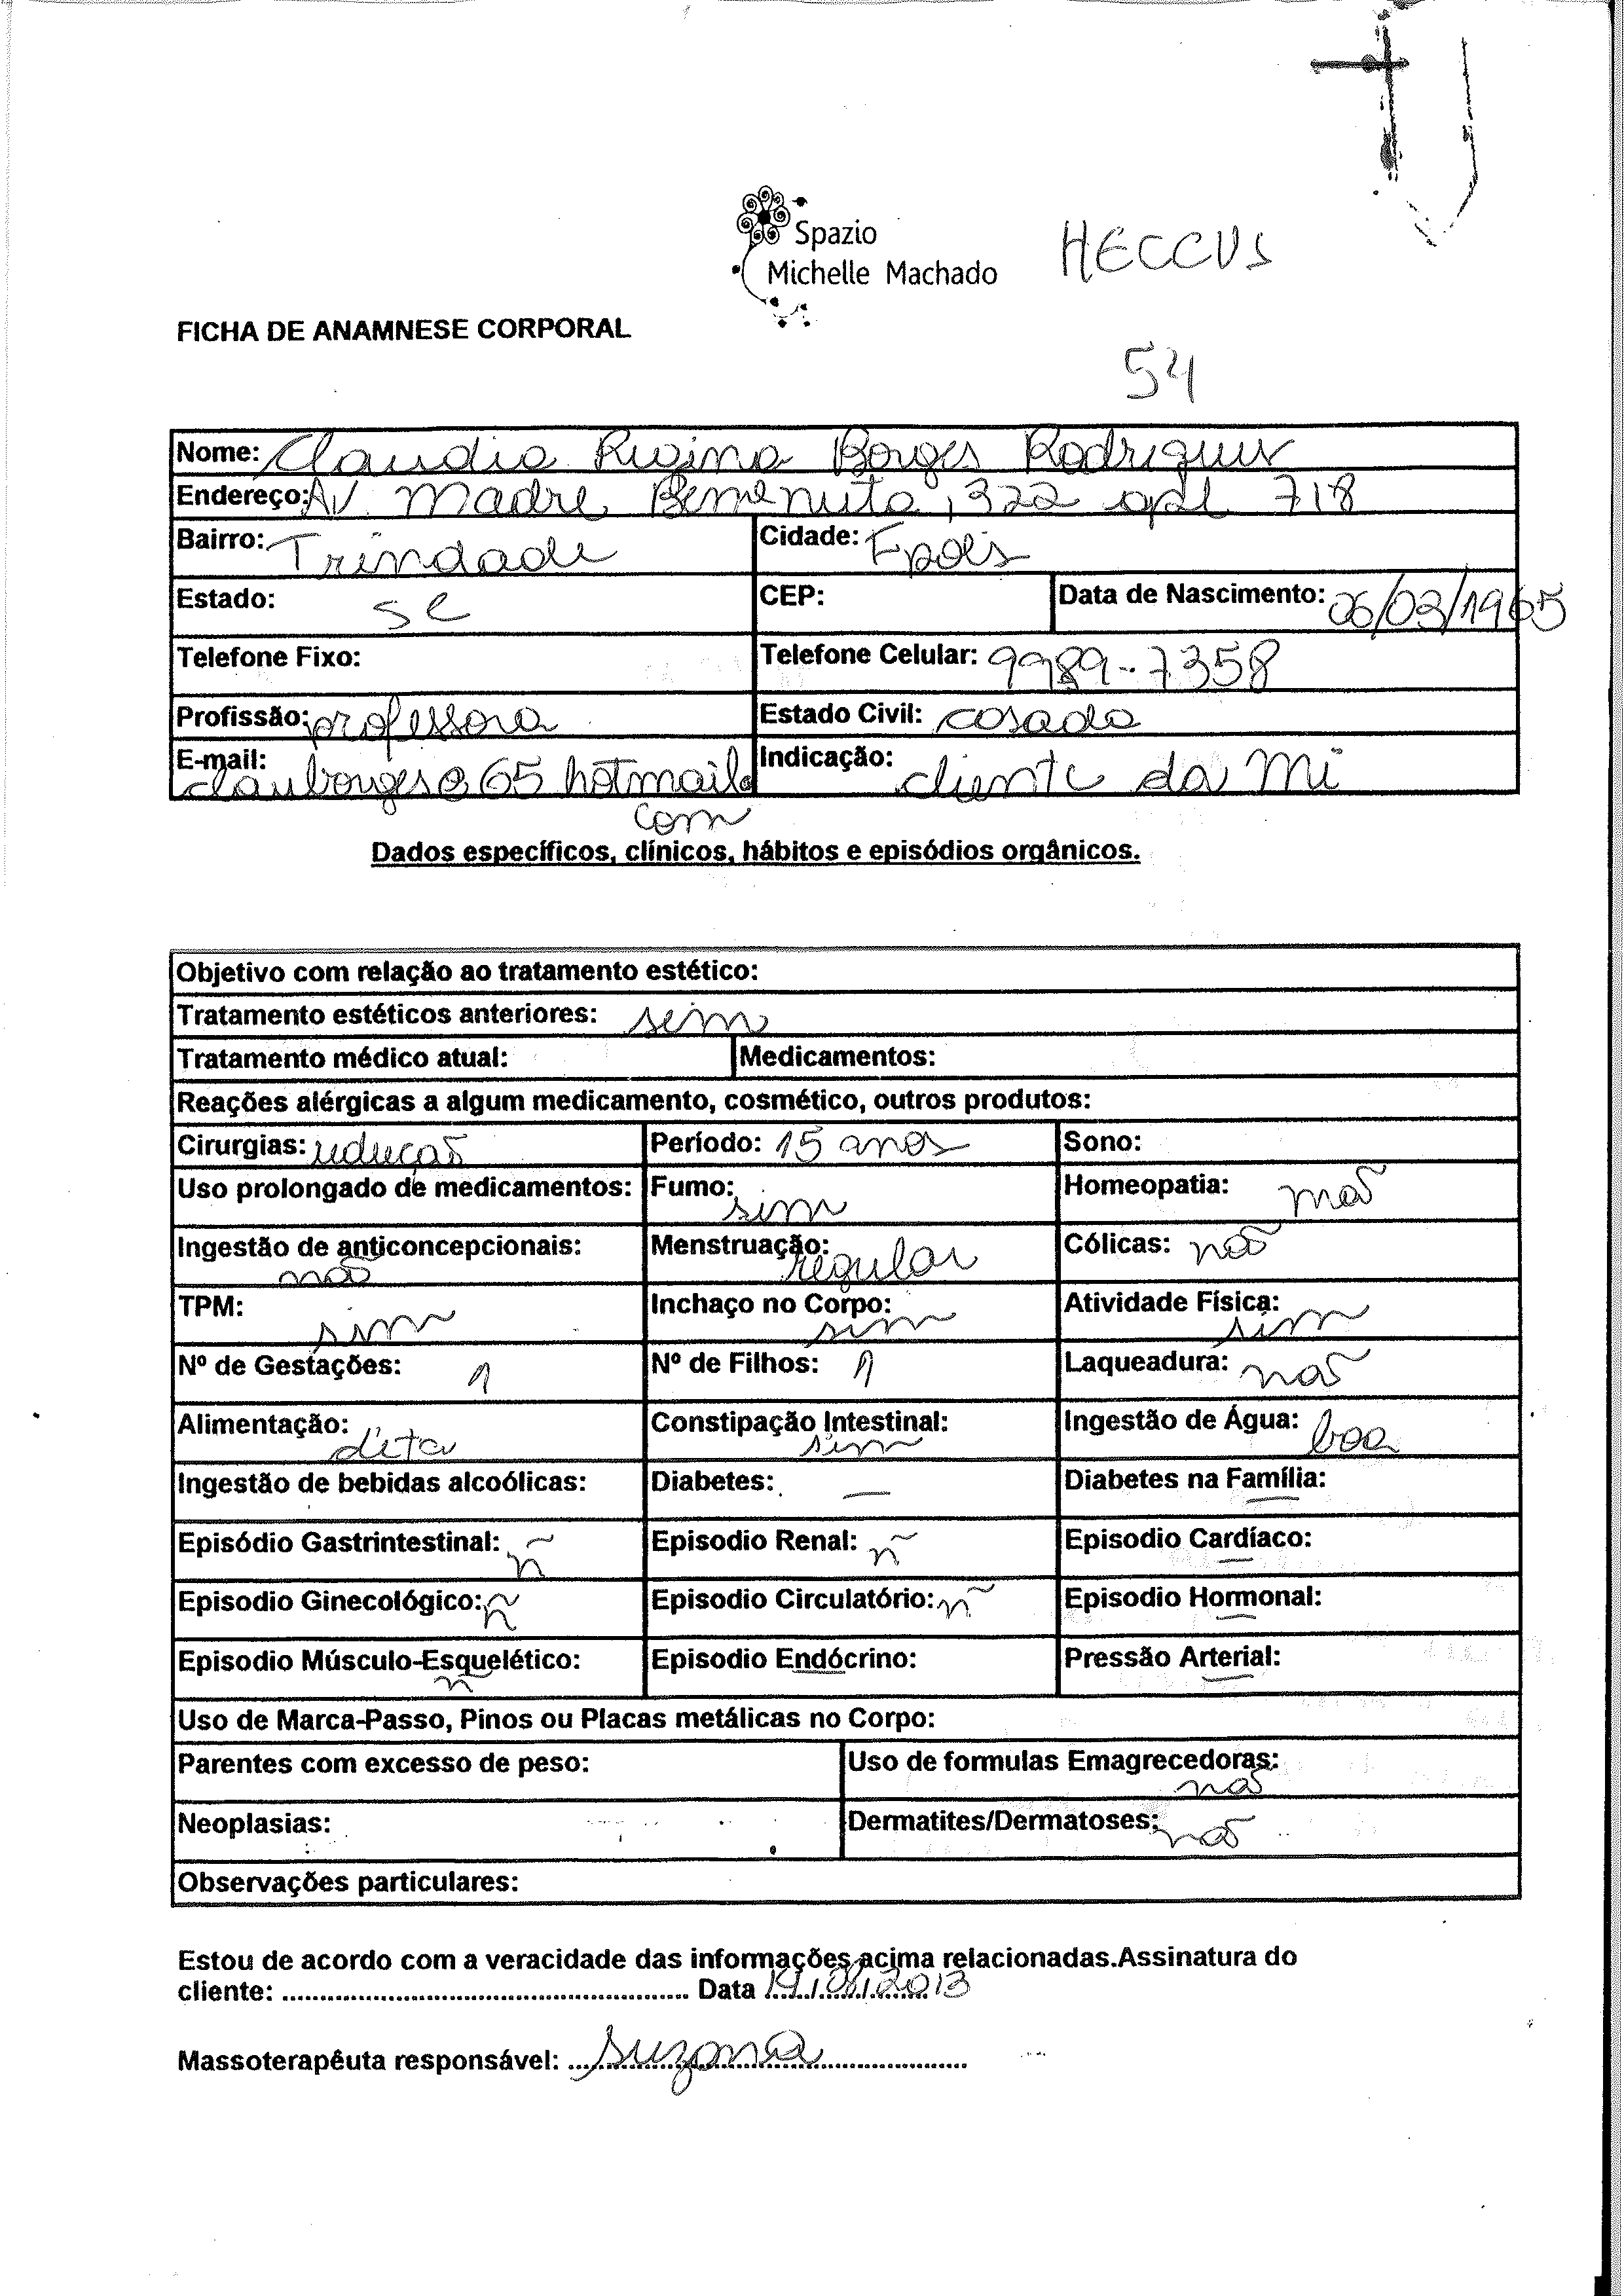 Spazio
Michelle Machado
HECCUS
FICHA DE ANAMNESE CORPORAL
54
Nome: Claudia Regina Borges Rodrigues
Endereço: Av. Madre Benvenuta, 322 apt 718
Bairro: Trindade Cidade: Fpolis
Estado: SC CEP: Data de Nascimento: 06/03/1965
Telefone Fixo: Telefone Celular: 9989-7358
Profissão: professora Estado Civil: casada
E-mail: clauborges@65 hotmail. Indicação: cliente da Mi
com
Dados específicos, clínicos, hábitos e episódios orgânicos.
Objetivo com relação ao tratamento estético:
Tratamento estéticos anteriores: sim
Tratamento médico atual: Medicamentos:
Reações alérgicas a algum medicamento, cosmético, outros produtos:
Cirurgias: redução Período: 15 anos Sono:
Uso prolongado de medicamentos: Fumo: sim Homeopatia: não
Ingestão de anticoncepcionais: não Menstruação: regular Cólicas: não
TPM: sim Inchaço no Corpo: sim Atividade Física: sim
Nº de Gestações: 1 Nº de Filhos: 1 Laqueadura: não
Alimentação: dieta Constipação Intestinal: sim Ingestão de Água: boa
Ingestão de bebidas alcoólicas: Diabetes: — Diabetes na Família: —
Episódio Gastrintestinal: ñ Episodio Renal: ñ Episodio Cardíaco: —
Episodio Ginecológico: ñ Episodio Circulatório: ñ Episodio Hormonal: —
Episodio Músculo-Esquelético: ñ Episodio Endócrino: — Pressão Arterial: —
Uso de Marca-Passo, Pinos ou Placas metálicas no Corpo:
Parentes com excesso de peso: Uso de formulas Emagrecedoras: não
Neoplasias: Dermatites/Dermatoses: não
Observações particulares:
Estou de acordo com a veracidade das informações acima relacionadas.Assinatura do
cliente: ...................................................... Data 19/08/2013
Massoterapêuta responsável: Suzana